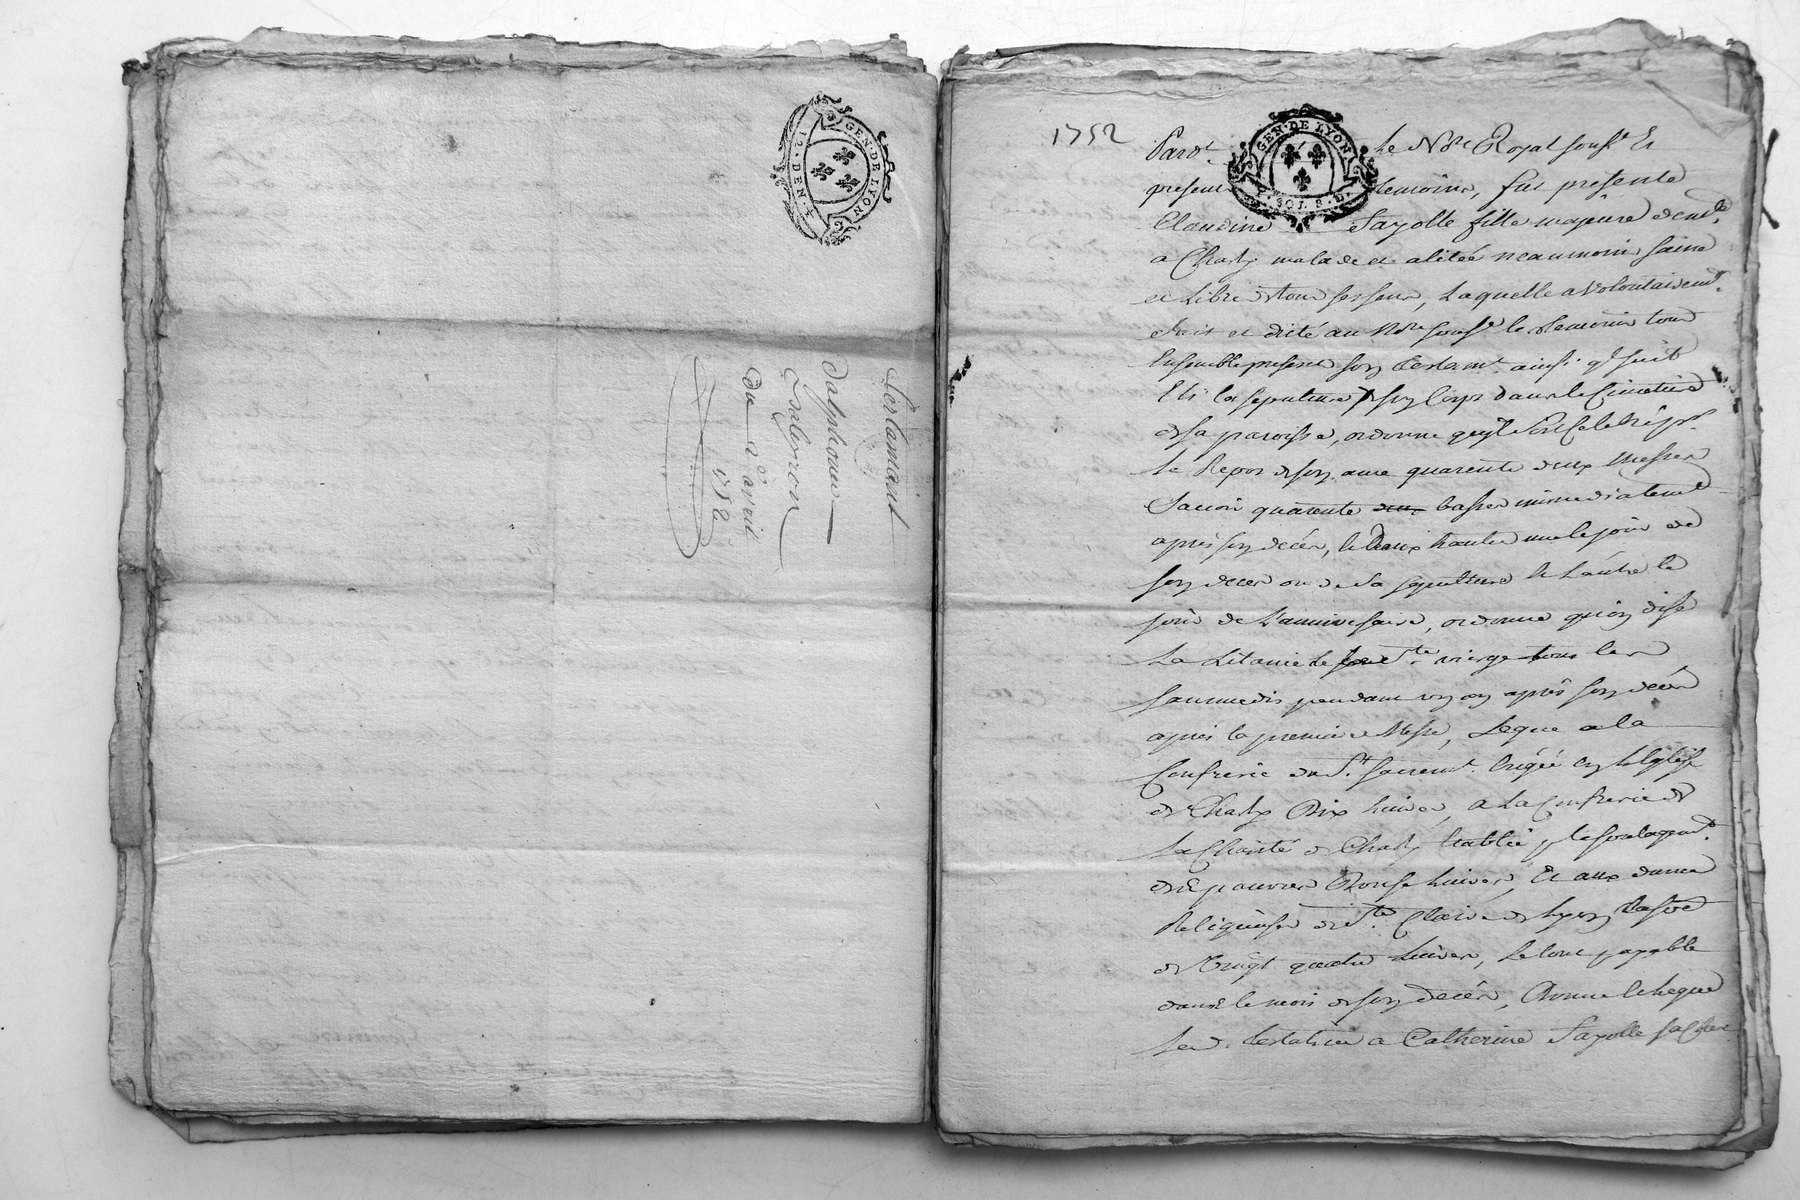 GEN · DE LYON
4 · DEN · 12
Testament
d'alphonse
du 2e avril
1752
1752
GEN · DE LYON
SOL 8 D
Pardt le Nre Royal soussé Et
present temoins, fut presente
Claudine Fayolle fille majeure demte
a Charly malade et alitée neanmoins saine
et Libre de tous ses sens, Laquelle a volontairemt
fait et dicté au Nre soussé les temoins tous
Ensemble presens son testamt ainsi ql suit
Elit la sepulture de son Corps dans le Cimetiere
de sa paroisse, ordonne qu'yl soit Celebré pr
Le Repos de son ame quarente deux Messes
Savoir quarente deux basses immediatemt
après son decés, les deux hautes une le jour de
son decés ou de sa sepulture et L'autre le
jour de L'anniversaire, ordonne qu'on dise
La Litanie de ste vierge tous les
sammedis pendant un an après son decés
après la premiere Messe, Legue a la
Confrerie du st sacremt Erigée en L'église
de Charly Dix Livres, a La Confrerie de
La Charité de Charly Etablie pr le soulagemt
des pauvres Quinse Livres, Et aux dames
Religieuses de ste Claire de Lyon
de Vingt quatre Livres, Le tout payable
dans le mois de son decés, Donne Et Legue
Lad. testatrice a Catherine Fayolle sa